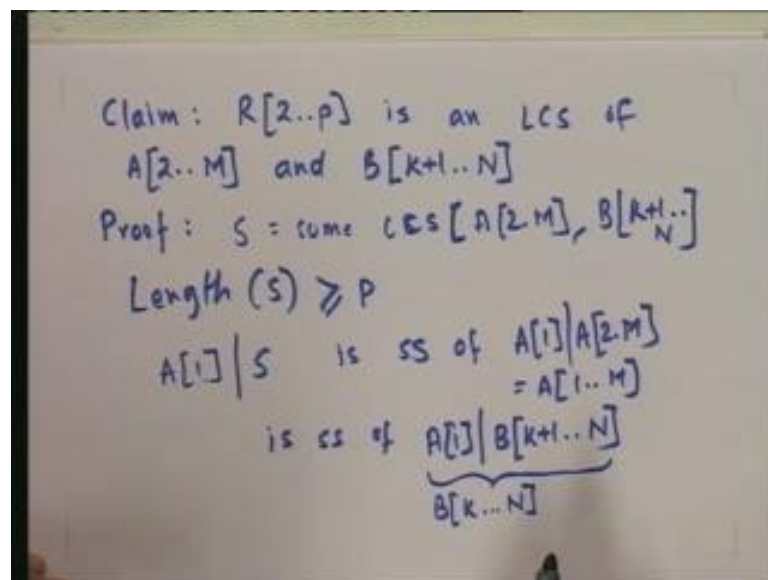 Claim: R[2..p] is an LCS of
A[2..M] and B[k+1..N]
Proof: S = some LCS[A[2.M], B[k+1..N]
Length (S) ⩾ P
A[1] | S is ss of A[1] | A[2.M]
= A[1..M]
is ss of A[1] | B[k+1..N]
B[k...N]